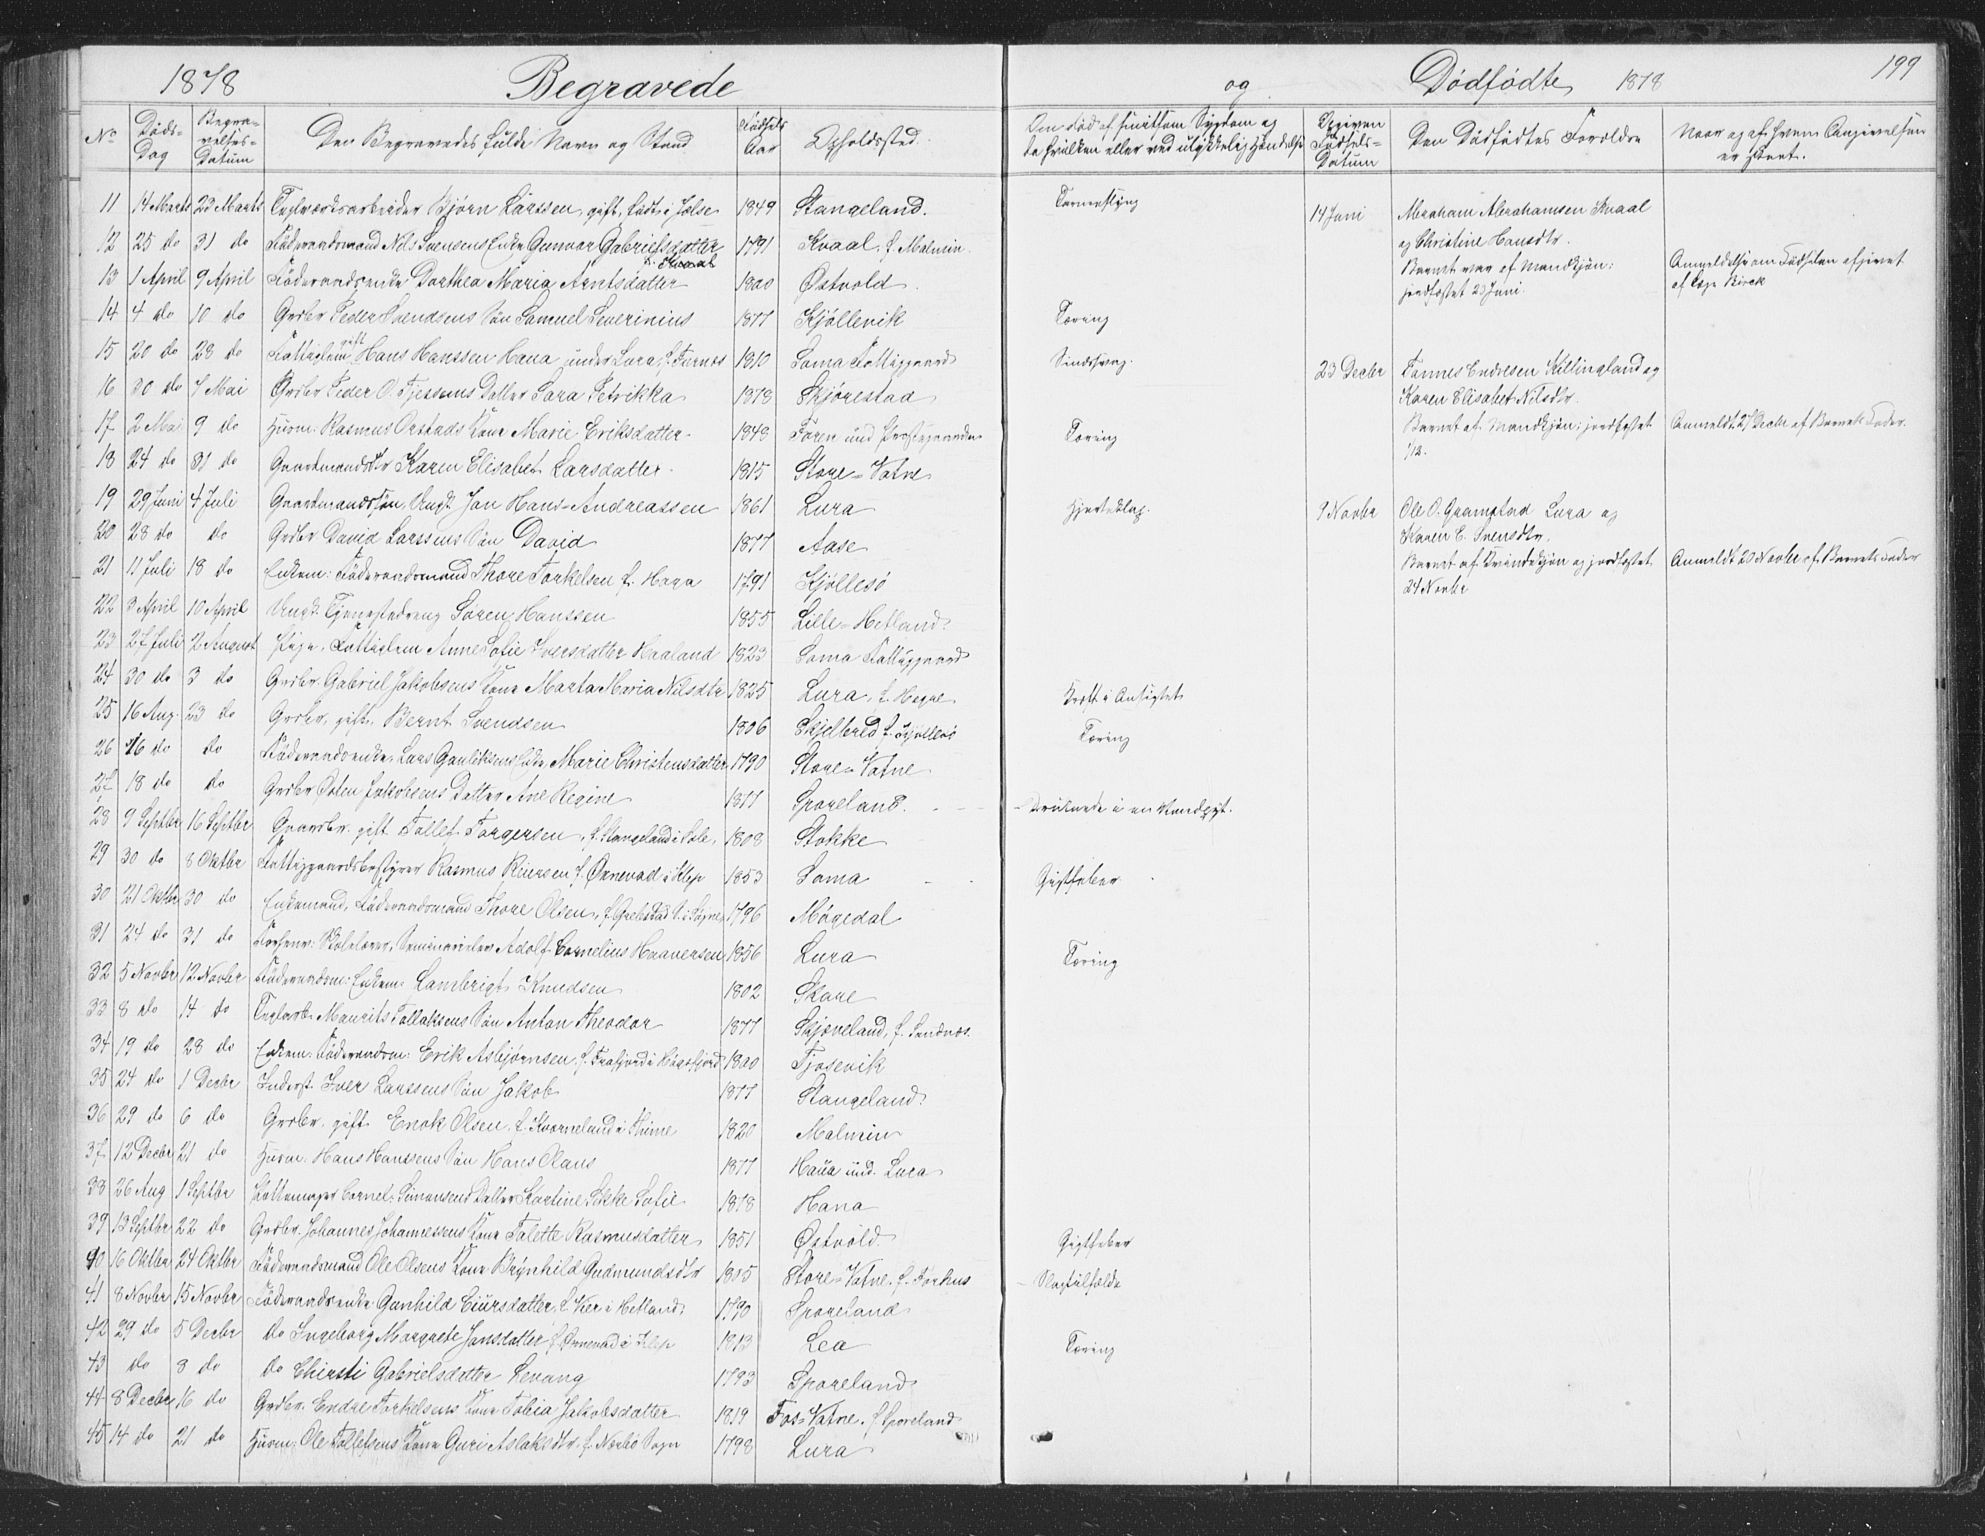 1878 Begravede og Dødfødte 1878 199
No Døds-Dag Begravelses-Datum Den Begravedes fulde Navn og Stand Fødsels Aar Opholdssted
Om død af smitsom Sygdom og da hvilken eller ved ulykkelig Hændelse Opgiven Fødsels-Datum Den Dødfødtes Forældre Naar og af hvem Angivelsen er skeet.
11 14 Marts 23 Marts Teglværksarbeider Bjørn Larssen, gift, født i Jelse 1849 Stangeland.
12 25 do 31 do Føderaadsmand Nils Svensens Enke Gunvor Gabrielsdatter 1791 Kvaal, f. Malmin
13 1 April 9 April Føderaadsenke Dorthea Maria Arntsdatter 1800 Østvold.
14 4 do 10 do Grdbr Peder Svendsens Søn Samuel Severinius 1877 Kjøllevik Tæring
15 20 do 28 do Fattiglem gift Hans Hanssen Hana under Lura, f. Furnes 1810 Soma Fattiggaard Sindssvag.
16 30 do 7 Mai Grdbr Peder O. Tjessems Datter Sara Petrikka 1878 Skjørestad
17 2 Mai 9 do Husm: Rasmus Orstads Kone Marie Eriksdatter. 1848 Foren und Præstegaarden Tæring
18 24 do 31 do Gaardmandsdtr Karen Elisabet Larsdatter. 1815 Store-Vatne
19 29 Juni 4 Juli Gaardmandssøn, Ungk. Jan Hans Andreassen 1861 Lura Hjerteslag.
20 28 do do Grdbr David Larssens Søn David 1877 Aase
21 11 Juli 18 do Enkem: Føderaadsmand Thore Torkelsen f. Hana 1791 Kjøllesø
22 3 April 10 April Ungk: Tjenestedreng Søren Hanssen 1855 Lille-Hetland
23 27 Juli 2 August Pige, Fattiglem Anne Sofie Iversdatter Haaland 1823 Soma Fattiggaard
24 30 do 3 do Grdbr. Gabriel Jakobsens Kone Marta Maria Nilsdtr 1825 Lura, f. Hegre Kræft i Ansigtet
25 16 Aug. 23 do Grdbr, gift, Bernt Svendsen 1806 Skjelbred f. Kjøllesø Tæring
26 16 do do Føderaadsenke, Lars Gauliksens Enke, Marie Christensdatter 1790 Store-Vatne
27 18 do do Grdbr Østen Jakobsens Datter Ane Regine 1877 Sporeland. Druknede i en Vandpyt.
28 9 Septbr 16 Septbr Gaardbr. gift Tollef Torgersen, f. Stangeland i Sole 1808 Stokke
29 30 do 8 Oktbr Fattiggaardsbestyrer Rasmus Riversen f. Ørnevad i Klep 1853 Soma Gigtfeber
30 21 Oktbr 30 do Enkemand, Føderaadsmand Thore Olsen, 1796 Møgedal
31 24 do 31 do Skolelærer, Adolf Cornelius Haaversen 1856 Lura Tæring
32 5 Novbr 12 Novbr Føderaadsm: Enkem: Lambrigt Knudsen 1802 Skare
33 8 do 14 do Teglarb. Maurits Tollaksens Søn Anton Theodor 1877 Skjæveland, f. Sandnes.
34 19 do 28 do Enkem: Føderaadsm: Erik Asbjørnsen, f. Frafjord i Høgsfjord 1800 Tjosevik
35 24 do 1 Decbr Inderst. Iver Larssens Søn Jakob 1877 Stangeland.
36 29 do 6 do Grdbr. gift Enok Olsen, f. Kverneland i Thime 1820 Malmin
37 12 Decbr 21 do Husm: Hans Hanssens Søn Hans Olaus 1877 Hana und. Lura
38 26 Aug 1 Septbr Pottemager Cornel: Simonsens Datter Martine Sikke Sofie 1878 Hana
39 13 Septbr 22 do Grdbr. Johannes Johannessens Kone Talette Rasmusdatter 1851 Østvold. Gigtfeber
40 16 Oktbr 24 Oktbr Føderaadsmand Ole Olsens Kone Brynhild Gudmundsdtr 1805 Store-Vatne. f. Forhus Slagtilfælde
41 8 Novbr 15 Novbr Føderaadsenke Gunhild Eiversdatter, f. Ker i Hetland. 1790 Sporeland
42 29 do 5 Decbr do Ingeborg Margrete Jansdatter f. Ørnevad i Klep 1813 Lea Tæring
43 do 8 do do Chirsti Gabrielsdatter Levang 1793 Sporeland
44 8 Decbr 16 do Grdbr. Endre Torkelsens Kone Tobia Jakobsdatter 1819 Fos-Vatne, f. Sporeland
45 14 do 21 do Husm: Ole Tollefsens Kone Guri Aslaksdtr. f. Nærbø Sogn 1798 Lura
14 Juni Abraham Abrahamsen Kvaal
og Christine Hansdtr.
Barnet var af Mandkjøn:
jordfæstet 23 Juni.
Anmeldelse om Fødselen afgivet
af Birck
23 Decbr Tønnes Endresen Killingland og
Karen Elisabet Nilsdtr.
Barnet af Mandkjøn; jordfæstet
Anmeldt 27 Decbr af Barnets Fader.
9 Novbr Ole O. Gramstad Lura og
Karen E. Svensdtr.
Barnet af Kvindekjøn og jordfæstet
24 Novbr
Anmeldt 20 Novbr af Barnets Fader